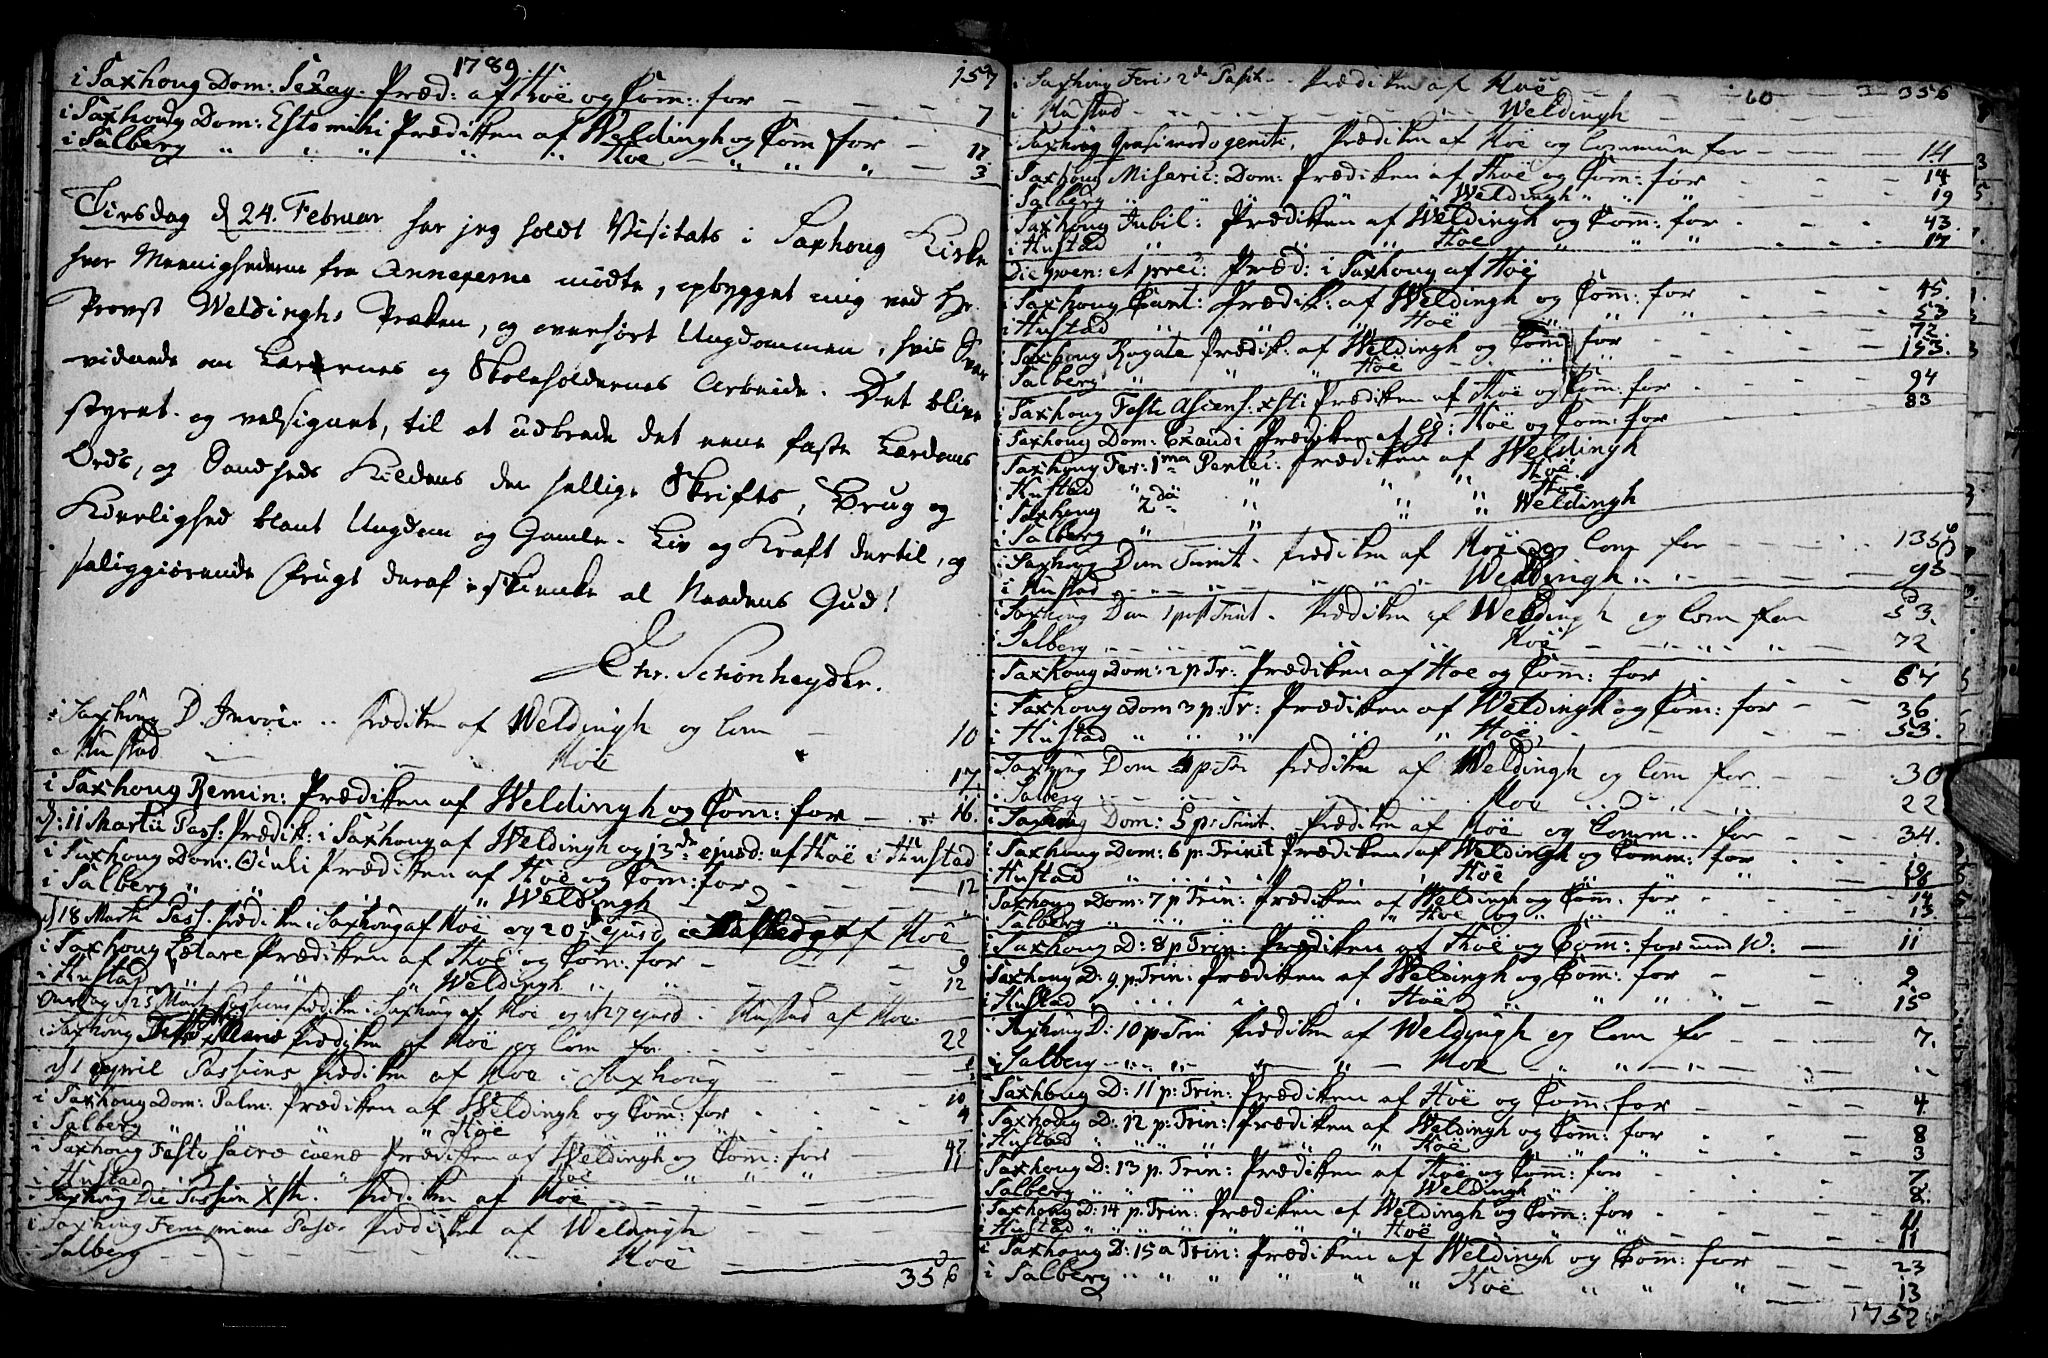 1789.
157
i Saxhoug Dom: Sexag. Præd: af Höe og Com: for — — — 7
i Saxhoug Dom: Esto mihi Prædiken af Weldingh og Com for — 17
i Salberg " " " " " Höe — " " " — 3
Tirsdag d 24. Februar har jeg holdt Visitats i Saxhoug Kirke
hvor Meenighederne fra Annexerne mødte, opbygget mig ved Hr.
Provst Weldinghs Præken, og overhørt Ungdommen, hvis Svar
vidnede om Lærernes og Skoleholdernes Arbeide. Det blive
styret og velsignet, til at udbrede det eene faste Lærdoms
Ords, og Sandheds Kildens den hellige Skrifts, Brug og
Kierlighed blant Ungdom og Gamle. Liv og Kraft dertil, og
saliggiørende Frugt deraf skienke al Naadens Gud!
Chr. Schönheyder.
i Saxhoug D. Invoc. .. Prædiken af Weldingh og Com — 10
i Hustad — — Höe
i Saxhoug Remin: Prædiken af Weldingh og Com: for — 16.
d: 11 Martii Pass: Prædik: i Saxhoug af Weldingh og 13de ejusd: af Höe i Hustad
i Saxhoug Dom: Oculi Prædiken af Höe og Com: for — — 12
i Salberg " " " Weldingh
d 18 Martii Pass. Prædiken i Saxhoug af Höe og 20 ejusd i Hustad af Höe
i Saxhoug Lætare Prædiken af Höe og Com: for — — 9
i Hustad " " " Weldingh " " — — 12
Onsdag d 25 Martii Passions Prædiken i Saxhoug af Höe og d 27 ejusd i Hustad af Höe.
i Saxhoug Festo Mariæ Prædiken af Höe og Com for — — 22
d 1 April Passions Prædiken af Höe i Saxhoug — —
i Saxhoug Dom: Palm: Prædiken af Weldingh og Com: for — 10
i Salberg " " " Höe — 4
i Saxhoug Festo sacræ coenæ Prædiken af Weldingh og Com: for — 47
i Hustad " " Höe " " " — 11
i Saxhoug Die Passion Xsti. Prædiken af Höe — —
i Saxhoug Feria prima Pasc: Prædiken af Weldingh
Salberg — — — — Höe
356
i Saxhoug Feria 2da Pasch. - Prædiken af Höe — — 60 356
i Hustad — — — — Weldingh
i Saxhoug Quasimodogeniti, Prædiken af Höe og Commun for — — 14
i Saxhoug Misaric: Dom: Prædiken af Höe og Com: for — — 14
i Salberg " " " Weldingh " " — 19
i Saxhoug Jubil: Prædiken af Weldingh og Com: for — — 43
i Hustad " " " Höe " " " — 17
Die poen: et prec: Præd: i Saxhoug af Höe
i Saxhoug Cant: Prædik: af Weldingh og Com: for — — 45.
i Hustad " " " Höe " " — 53
i Saxhoug Rogate Prædik: af Weldingh og Com: for — — 72.
i Salberg " " " Höe — — 153.
i Saxhoug Festi Ascens: Xsti Prædiken af Höe og Com: for — — 94
i Saxhoug Dom: Exaudi Prædiken af Höe og Com: for — — 83
i Saxhoug Fer: 1ma Pentec: Prædiken af Weldingh
i Hustad " " " " Höe
i Saxhoug 2da " " " Höe
i Salberg " " " " Weldingh
i Saxhoug Dom Trinit. Prædiken af Höe og Com for — — 135
i Hustad — — — Weldingh — — 98
i Saxhoug Dom 1 post Trinit. Prædiken af Weldingh og Com for 53.
i Salberg — — — Höe — — 72
i Saxhoug Dom: 2 p Tr: Prædiken af Höe og Com: for — — 67
i Saxhoug Dom 3 p: Tr: Prædiken af Weldingh og Com: for — — 36.
i Hustad " " " Höe, — — 53.
i Saxhoug Dom 4 p Tr Prædiken af Weldingh og Com for — — 30
i Salberg — — — Höe — — 22
i Saxhoug Dom: 5 p: Trinit. Prædiken af Höe og Comm.. for — — 34.
i Saxhoug Dom: 6 p: Trinit Prædiken af Weldingh og Comm: for — — 19
i Hustad " " " Höe " " — 18
i Saxhoug Dom: 7 p Trin: Prædiken af Weldingh og Com: for — — 14
i Salberg " " " Höe og " " — 13.
i Saxhoug D: 8 p Trin: Prædiken af Höe og Com: for med W: — 11
i Saxhoug D: 9 p: Trin: Prædiken af Weldingh og Com: for — — 9
i Hustad " " " Höe " " " — 15
i Saxhoug D: 10 p Trin Prædiken af Weldingh og Com for — — 7.
i Salberg — — — Höe " " —
i Saxhoug D: 11 p: Trin: Prædiken af Höe og Com: for — — 4
i Saxhoug D: 12 p: Trin: Prædiken af Weldingh og Com: for — — 8
i Hustad " " " Höe " " — 3
i Saxhoug D: 13 p: Trin: Prædiken af Höe og Com: for — — 7
i Salberg " " " Weldingh " — 8.
i Saxhoug D: 14 p: Trin: Prædiken af Weldingh og Com: for — — 11
i Hustad " " " Höe " " — 11
i Saxhoug D: 15 a Trin: Prædiken af Weldingh og Com: for — — 23
i Salberg " " " Höe " " " — 13
1752